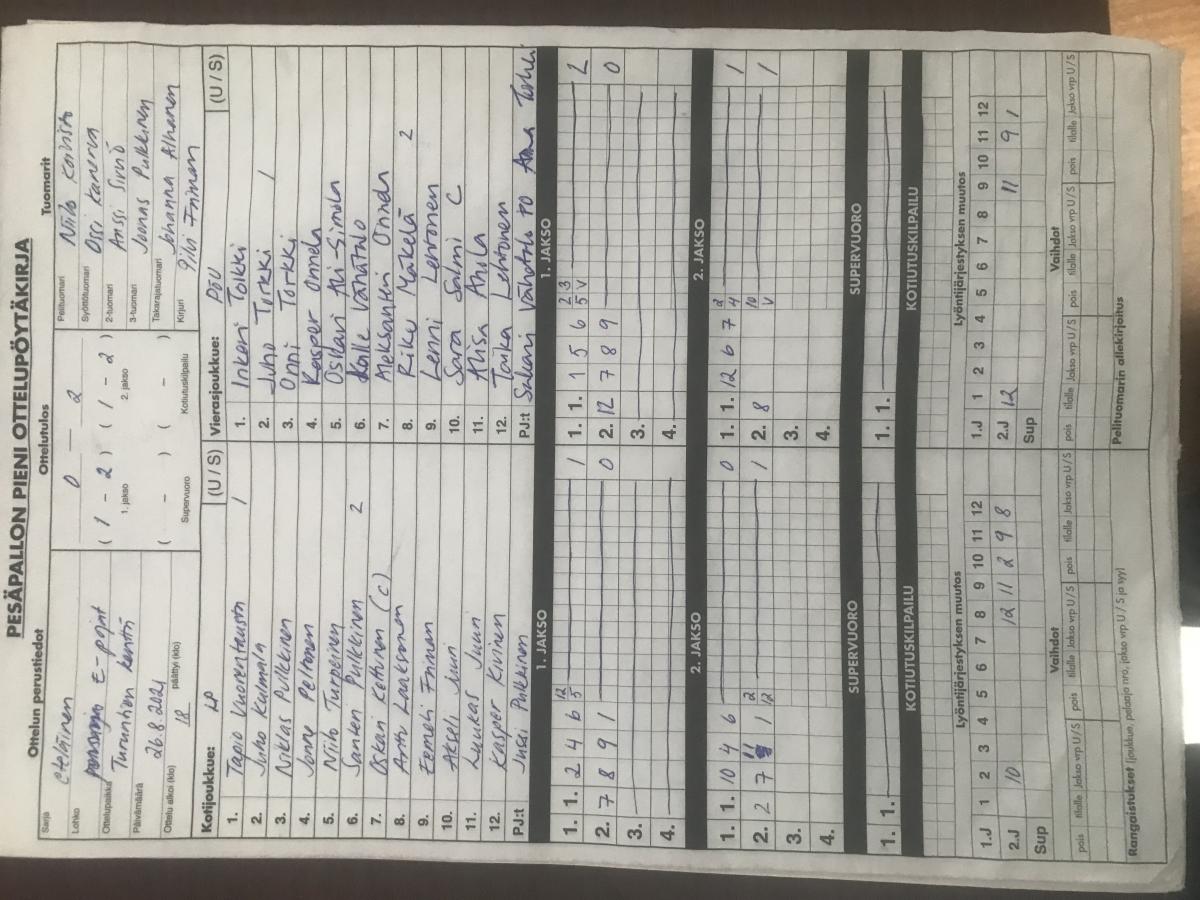 PESÄPALLON PIENI OTTELUPÖYTÄKIRJA
Ottelun perustiedot
Sarja
Eteläinen
Lohko
E-pojat
Ottelupaikka
Turuntien kenttä
Päivämäärä
26.8.2021
Ottelu alkoi (klo) 18 päättyi (klo)
Ottelutulos
0 — 2
( 1 - 2 ) ( 1 - 2 )
1. jakso 2. jakso
( - ) ( - )
Supervuoro Kotiutuskilpailu
Tuomarit
Pelituomari Niilo
Syöttötuomari Ossi Kanerva
2-tuomari Anssi
3-tuomari Joonas Pulkkinen
Takarajatuomari Johanna Alhanen
Kirjuri Frimen
Kotijoukkue: LP (U / S)
1. Tapio Vuorentausta 1
2. Juho Kulmala
3. Niklas Pulkkinen
4. Jonne Peltonen
5. Niilo Turpeinen
6. Santeri Pulkkinen 2
7. Oskari Kettunen (C)
8. Antti Laaksonen
9. Eemeli Frimen
10. Akseli Juuri
11. Luukas Juuri
12. Kasper Kivinen
PJ:t Jussi Pulkkinen
Vierasjoukkue: PöU (U / S)
1. Inkeri Torkki
2. Juho Torkki 1
3. Onni Torkki
4. Kasper Onnela
5. Oskari Ali-Simola
6. Kalle Vähätalo
7. Aleksanteri Onnela
8. Riku Mäkelä 2
9. Lenni Lehtonen
10. Sara Salmi C
11. Alisa Ahila
12. Taika Lehtonen
PJ:t Sakari Vähätalo
1. JAKSO
1. 1. 2 4 6 5 12 1
2. 7 8 9 1 0
3.
4.
1. JAKSO
1. 1. 1 5 6 2 5 3 V 2
2. 12 7 8 9 0
3.
4.
2. JAKSO
1. 1. 10 4 6 0
2. 2 7 11 1 12 2 1
3.
4.
2. JAKSO
1. 1. 12 6 7 4 2 1
2. 8 V 10 1
3.
4.
SUPERVUORO
1. 1.
SUPERVUORO
1. 1.
KOTIUTUSKILPAILU
KOTIUTUSKILPAILU
Lyöntijärjestyksen muutos
1.J 1 2 3 4 5 6 7 8 9 10 11 12
2.J 10 12 11 2 9 8
Sup
Lyöntijärjestyksen muutos
1.J 1 2 3 4 5 6 7 8 9 10 11 12
2.J 12 11 9 1
Sup
Vaihdot
pois tilalle Jakso vrp U / S pois tilalle Jakso vrp U / S pois tilalle Jakso vrp U / S
Vaihdot
pois tilalle Jakso vrp U / S pois tilalle Jakso vrp U / S pois tilalle Jakso vrp U / S
Rangaistukset (joukkue, pelaaja nro, jakso vrp U / S ja syy)
Pelituomarin allekirjoitus